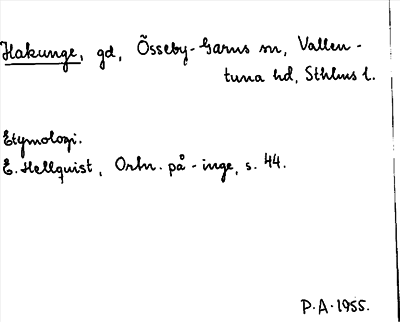 Hakunge, gd, Össeby-Garns sn, Vallen-
tuna hd, Sthlms l.
Etymologi.
E. Hellquist, Ortn. på -inge, s. 44.
P.A. 1955.